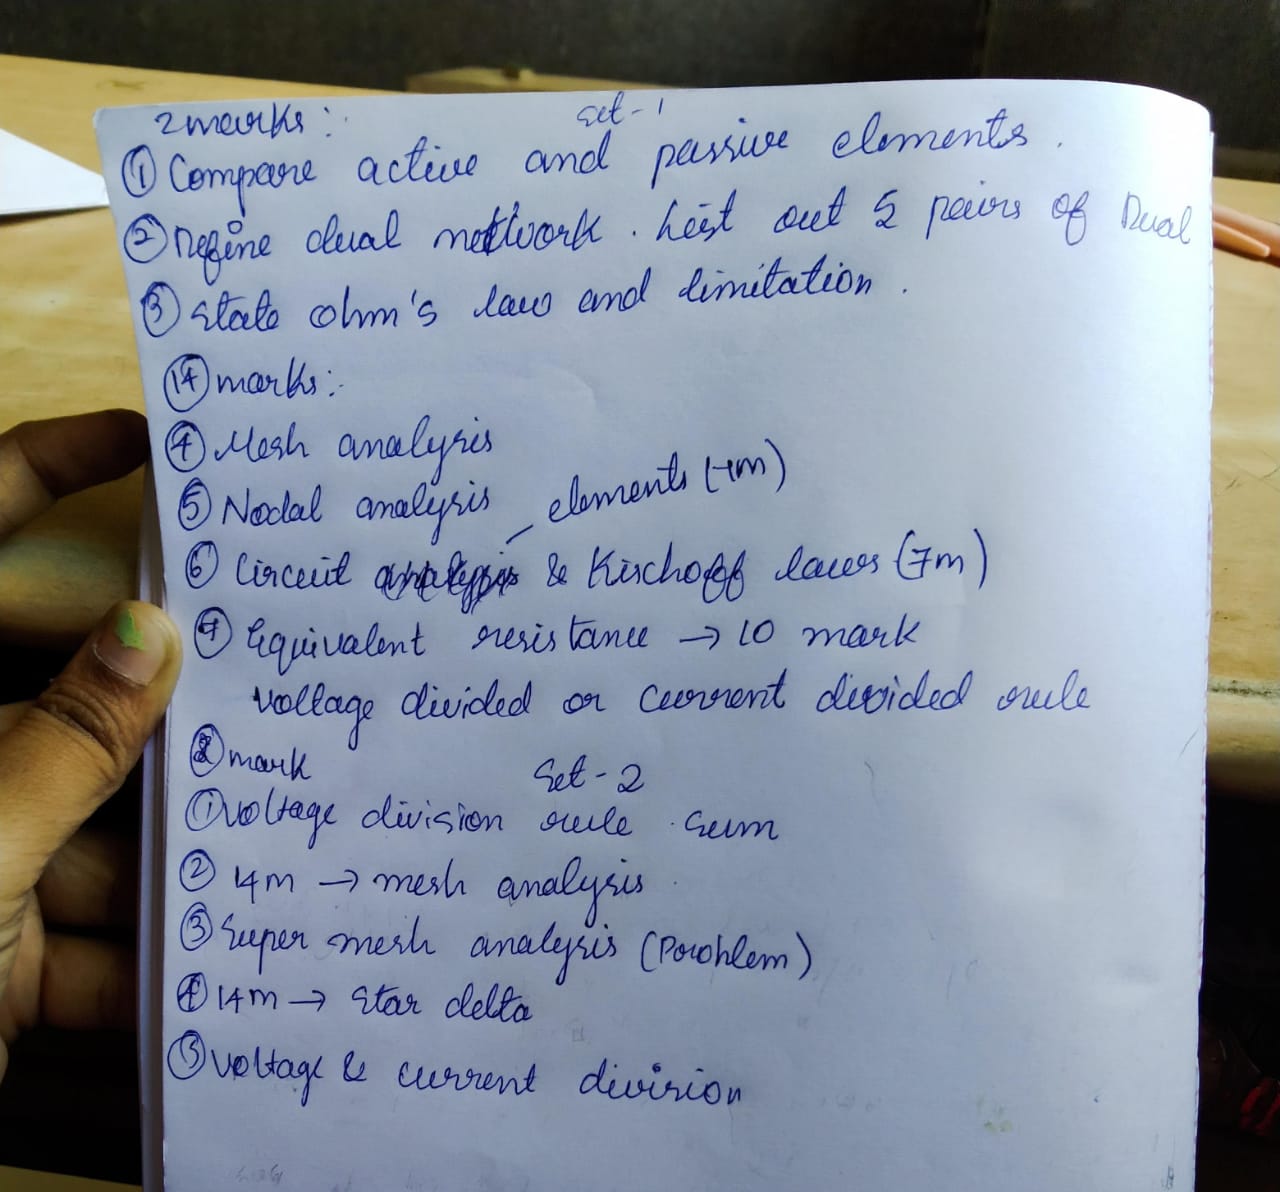 2marks: Set-1
① Compare active and passive elements.
② Define dual network. List out 5 pairs of Dual
③ State ohm's law and limitation.
⑭ marks:-
④ Mesh analysis
⑤ Nodal analysis
elements (7m)
⑥ Circuit & Kirchoff laws (7m)
⑦ Equivalent resistance → 10 mark
Voltage divided or current divided rule
② mark Set-2
① Voltage division rule sum
② 14m → mesh analysis
③ Super mesh analysis (Problem)
④ 14m → Star delta
⑤ Voltage & current division